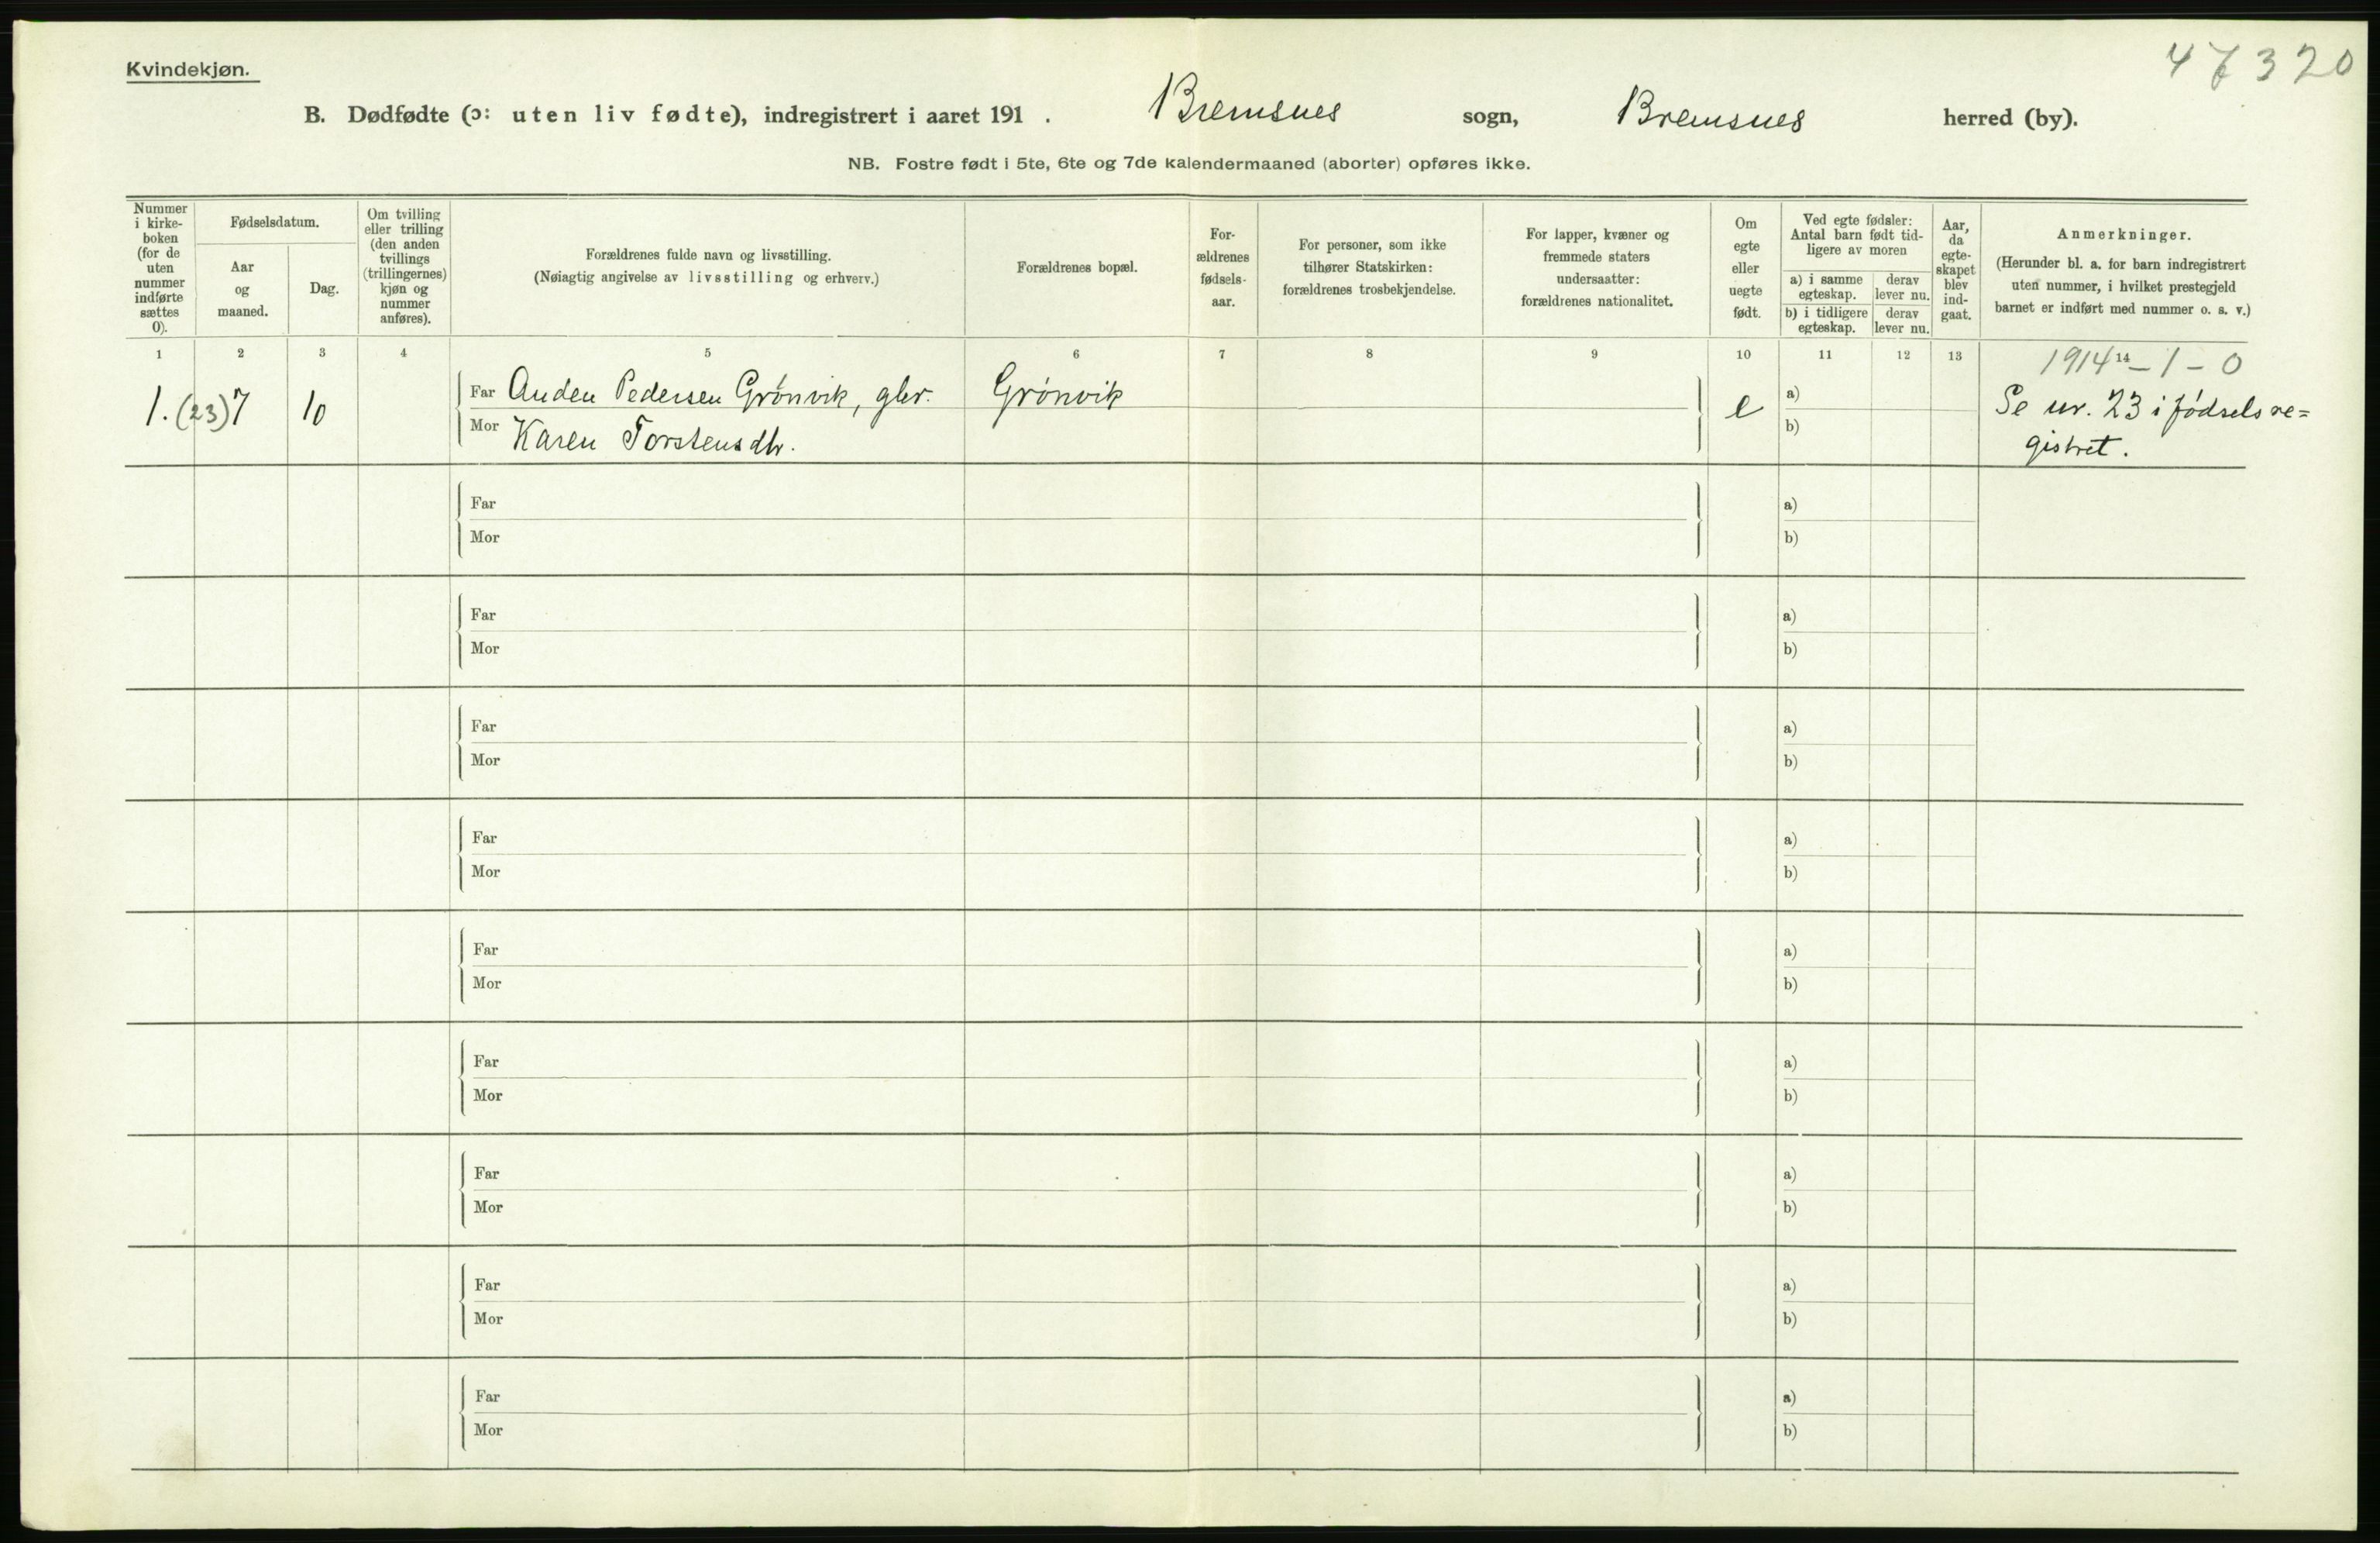 47320
Kvindekjøn.
B. Dødfødte (ɔ: uten liv fødte), indregistrert i aaret 191 . Bremsnes sogn, Bremsnes herred (by).
NB. Fostre født i 5te, 6te og 7de kalendermaaned (aborter) opføres ikke.
Nummer
i kirke-
boken
(for de
uten
nummer
indførte
sættes
0).
Fødselsdatum.
Aar
og
maaned.
Dag.
Om tvilling
eller trilling
(den anden
tvillings
(trillingernes)
kjøn og
nummer
anføres).
Forældrenes fulde navn og livsstilling.
(Nøiagtig angivelse av livsstilling og erhverv.)
Forældrenes bopæl.
For-
ældrenes
fødsels-
aar.
For personer, som ikke
tilhører Statskirken:
forældrenes trosbekjendelse.
For lapper, kvæner og
fremmede staters
undersaatter:
forældrenes nationalitet.
Om
egte
eller
uegte
født.
Ved egte fødsler:
Antal barn født tid-
ligere av moren
a) i samme
egteskap.
derav
lever nu.
b) i tidligere
egteskap.
derav
lever nu.
Aar,
da
egte-
skapet
blev
ind-
gaat.
Anmerkninger.
(Herunder bl. a. for barn indregistrert
uten nummer, i hvilket prestegjeld
barnet er indført med nummer o. s. v.)
1 2 3 4 5 6 7 8 9 10 11 12 13 14
1914 - 1 - 0
1. (23) 7 10 Far Anden Pedersen Grønvik, gbr. Grønvik e a) Se nr. 23 i fødselsre=
Mor Karen Torstensdtr. b) gistret.
Far a)
Mor b)
Far a)
Mor b)
Far a)
Mor b)
Far a)
Mor b)
Far a)
Mor b)
Far a)
Mor b)
Far a)
Mor b)
Far a)
Mor b)
Far a)
Mor b)